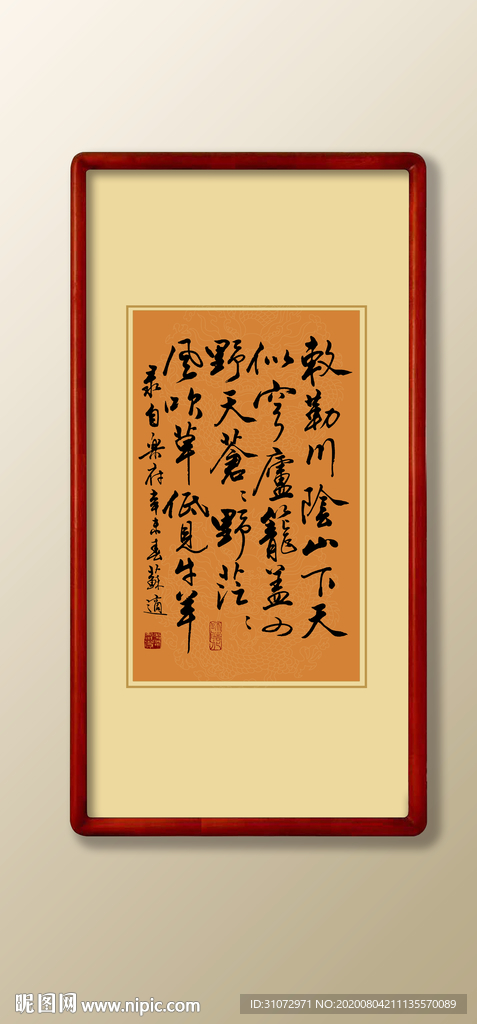 敕勒川陰山下天
似穹廬籠蓋四
野天蒼〻野茫〻
風吹草低見牛羊
录自樂府辛未春蘇適
昵图网 www.nipic.com
ID:31072971 NO:20200804211135570089